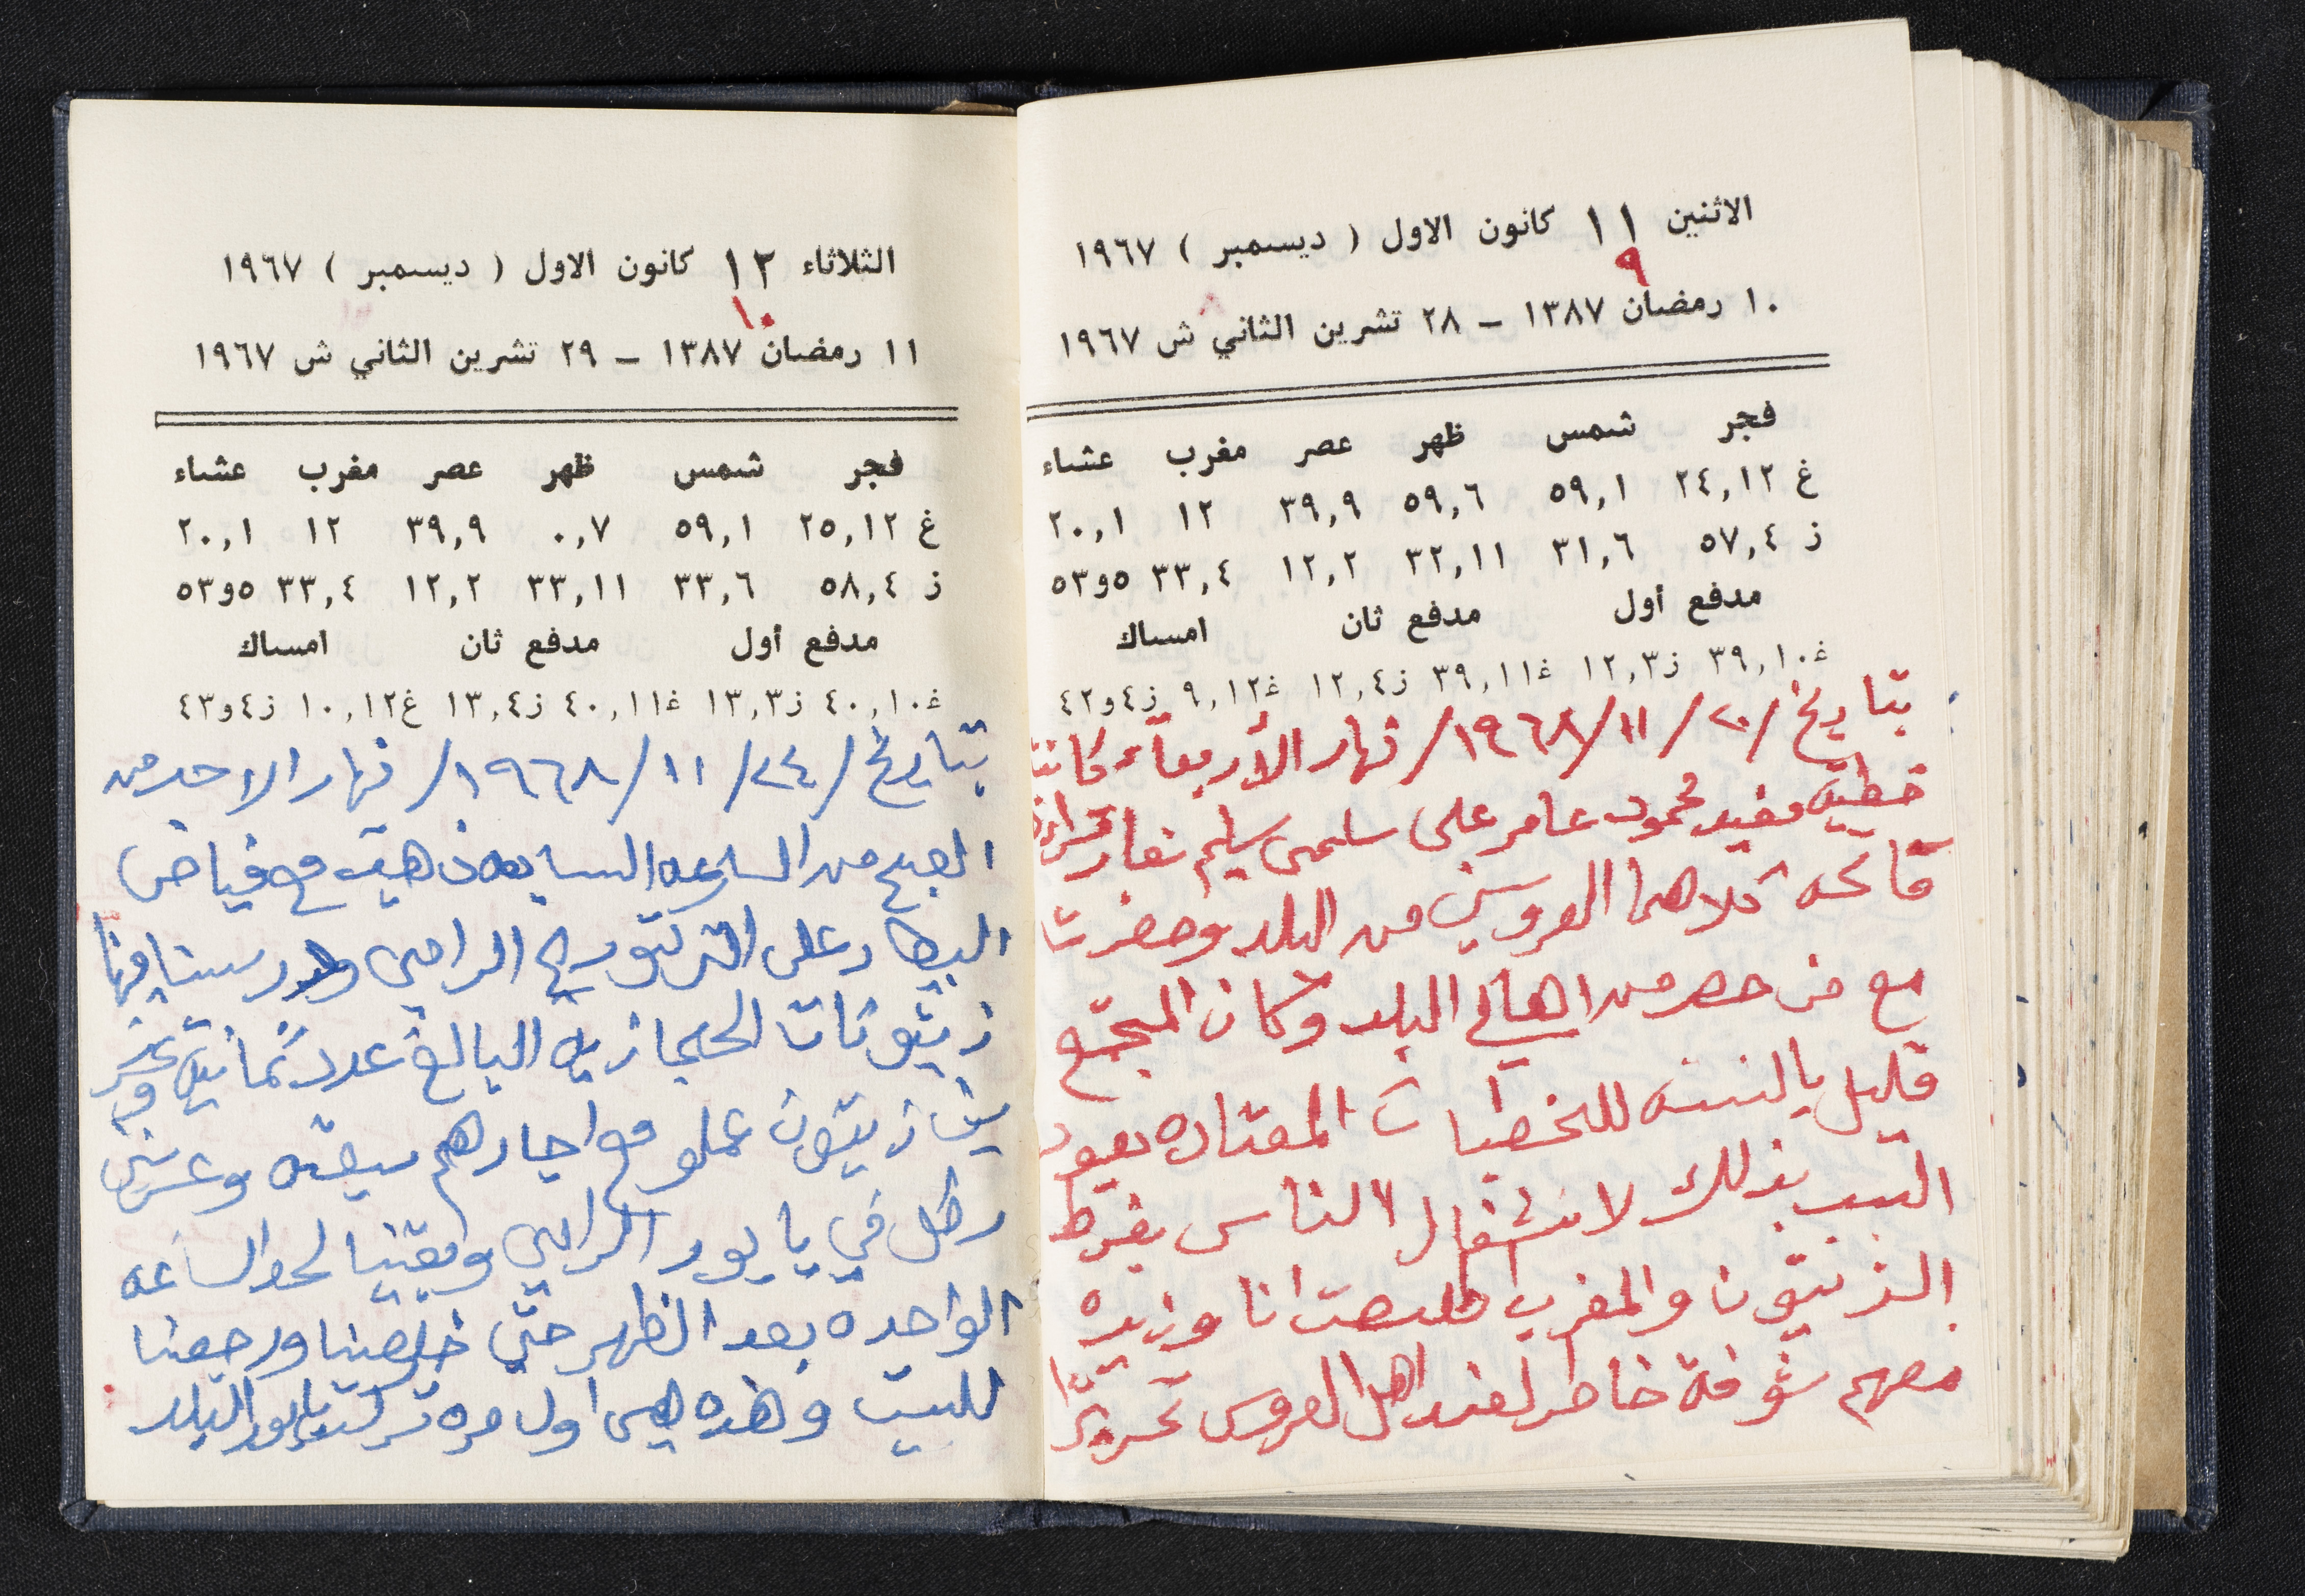 الاثنين ١١ كانون الاول ( ديسمبر ) ١٩٦٧
٩
١٠ رمضان ١٣٨٧ – ٢٨ تشرين الثاني ش ١٩٦٧
فجر شمس ظهر عصر مغرب عشاء
غ ٢٤,١٢ ٥٩,١ ٥٩,٦ ٣٩,٩ ١٢ ٢٠,١
ز ٥٧,٤ ٣١,٦ ٣٢,١١ ١٢,٢ ٣٣,٤ ٥و٥٣
مدفع أول مدفع ثان امساك
غ٣٩,١٠ ز١٢,٣ غ٣٩,١١ ز١٢,٤ غ٩,١٢ ز٤و٤٢
بتاريخ /٢٠/١١/١٩٦٨/ نهار الأربعاء كانت
خطبة مفيد محمود عامر على سلمى سليم نصار
فاتحه كلاهما العروسين من البلد وحضرت
مع من حضر من اهالي البلد وكان المجتمع
قليل بالنسبه للخطبات المعتاده يعود
السبب بذلك لانشغال الناس بفرط
الزيتون والمغرب طلعت انا وزيده
معهم شوفة خاطر لعند اهل العروس تحريرًا
الثلاثاء ١٢ كانون الاول ( ديسمبر ) ١٩٦٧
١٠
١١ رمضان ١٣٨٧ – ٢٩ تشرين الثاني ش ١٩٦٧
فجر شمس ظهر عصر مغرب عشاء
غ ٢٥,١٢ ٥٩,١ ٠,٧ ٣٩,٩ ١٢ ٢٠,١
ز ٥٨,٤ ٣٣,٦ ٣٣,١١ ١٢,٢ ٣٣,٤ ٥و٥٣
مدفع أول مدفع ثان امساك
غ٤٠,١٠ ز١٣,٣ غ٤٠,١١ ز١٣,٤ غ١٠,١٢ ز٤و٤٣
بتاريخ /٢٤/١١/١٩٦٨/ نهار الاحد من
الصبح من الساعه السابعه ذهبت مع فياض
البيطار على التركتور الرامي ودرسنا فيها
زيتونات الحجازيه البالغ عدد ثمانية وعشر
ين زيتون عملو مع اجارهم سبعه وعشرين
رطل في بابور الرامي وبقينا لحد الساعه
الواحده بعد الظهر حتى خلصنا ورجعنا
للبيت وهذه هي اول مره تركت بابور البلد